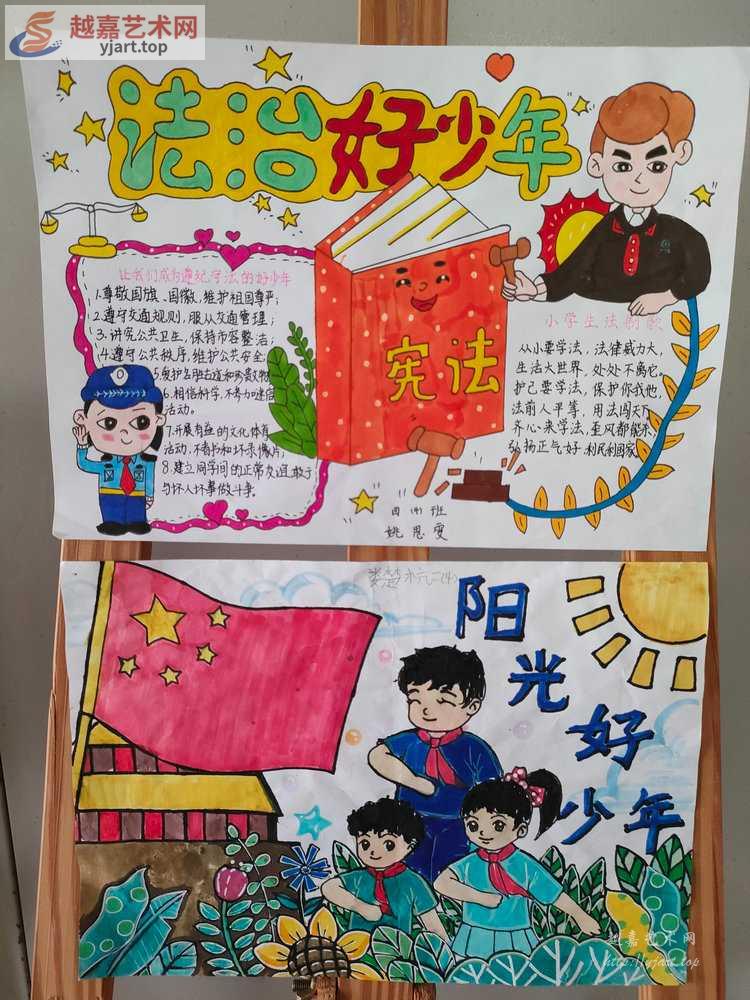 越嘉艺术网
yjart.top
法治好少年
让我们成为遵纪守法的好少年
1.尊敬国旗、国徽,维护祖国尊严;
2.遵守交通规则,服从交通管理;
3.讲究公共卫生,保持市容整洁;
4.遵守公共秩序,维护公共安全;
5.爱护名胜古迹和珍贵文物
6.相信科学,不参加迷信
活动。
7.开展有益的文化体育
活动,不看书和坏录像片;
8.建立同学间的正常交道,敢于
与坏人坏事做斗争。
宪法
小学生法制歌
从小要学法,法律威力大,
生活大世界,处处不离它。
护己要学法,保护你我他,
法前人平等,用法闯天下
齐心来学法,歪风都能杀,
弘扬正气好,利民利国家
四(4)班
姚思雯
二(4)
阳光好少年
越嘉艺术网
http://yjart.top